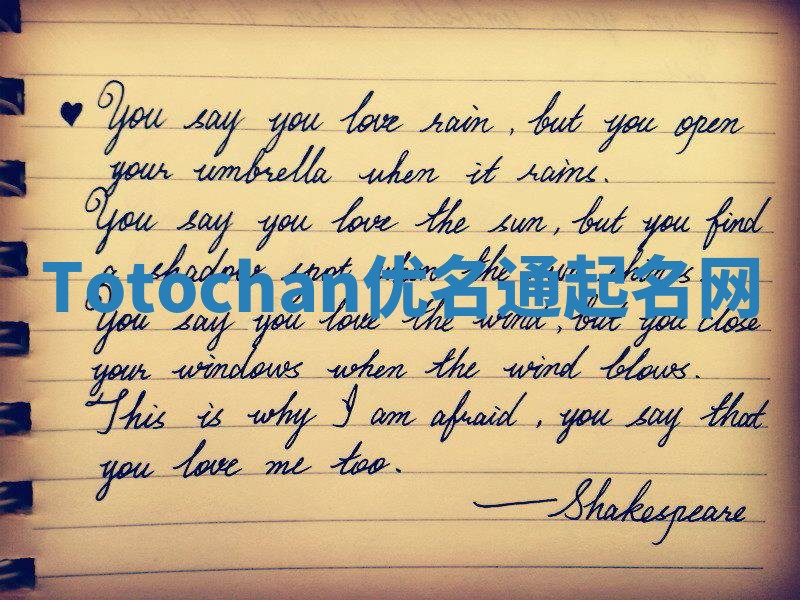 ♥ You say you love rain, but you open
your umbrella when it rains.
You say you love the sun, but you find
a shadow spot when the sun shines.
Totochan优名通起名网
You say you love the wind, but you close
your windows when the wind blows.
This is why I am afraid, you say that
you love me too.
—Shakespeare